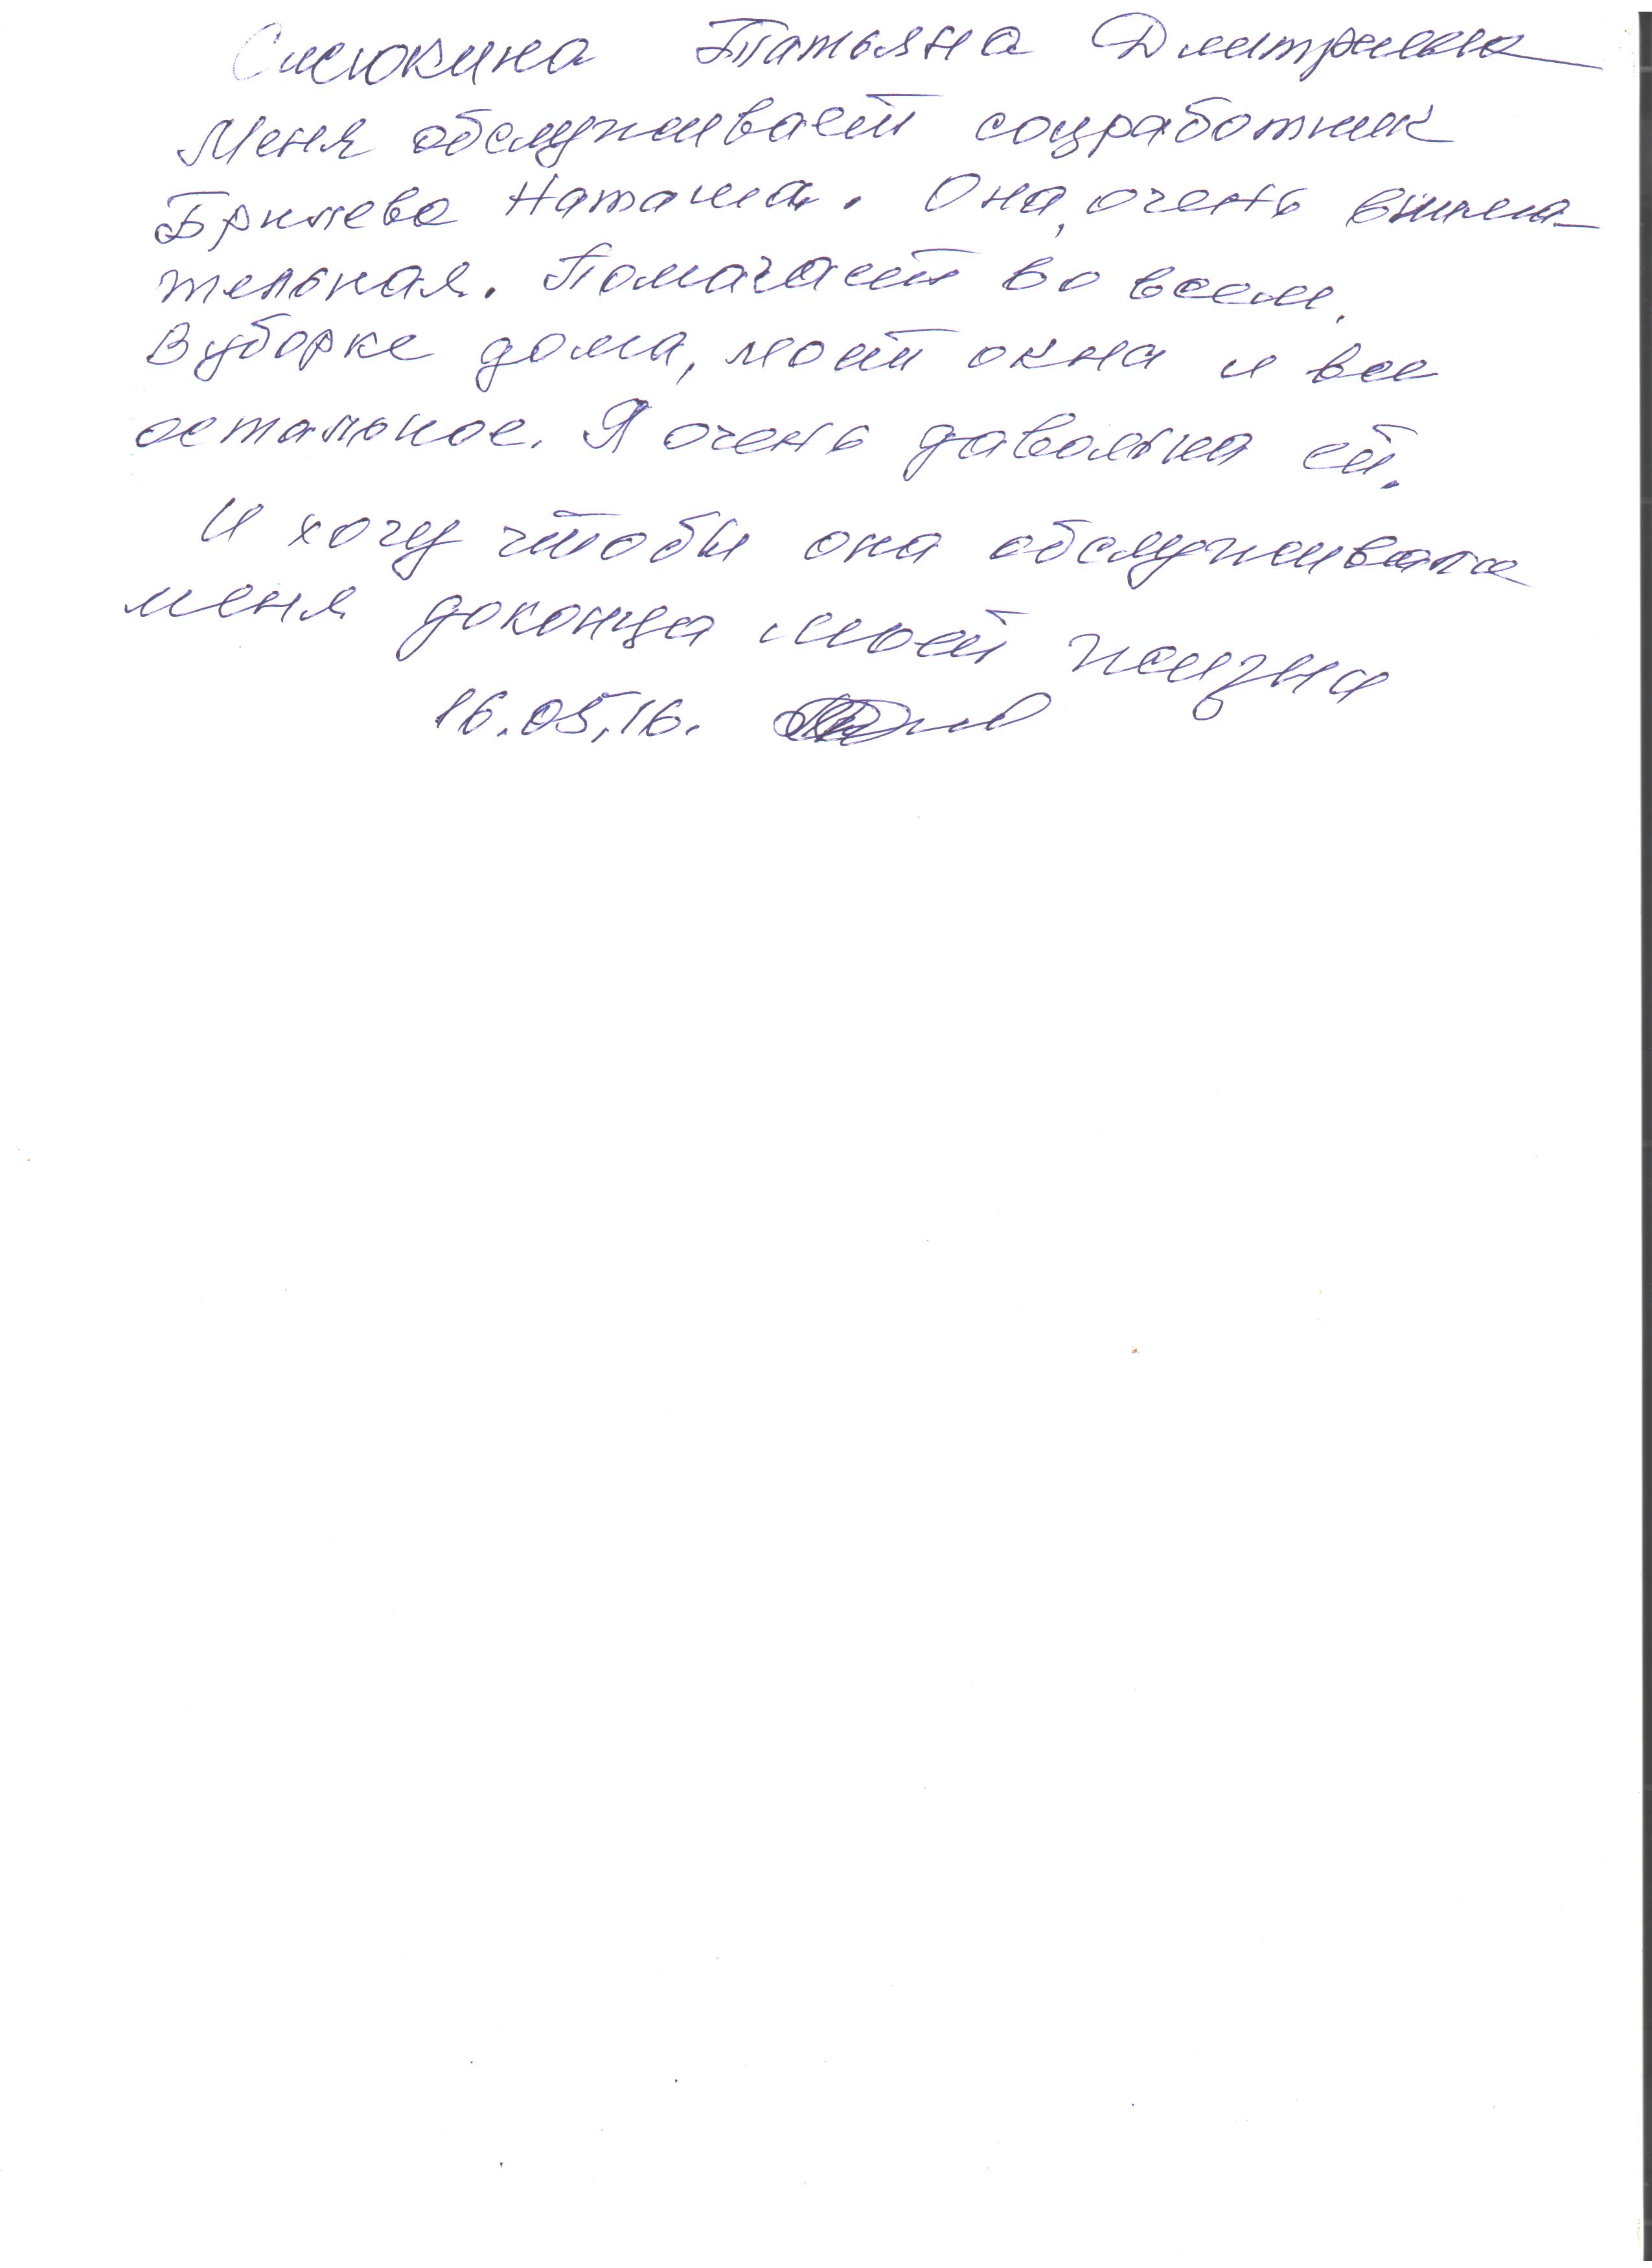 Татьяна Дмитриевна
Меня обслуживает соцработник
Брилева Наташа. Она, очень внима-
тельная. Помагает во всем.
В уборке дома, моет окна и все
остальное. Я очень давольна ей.
И хочу чтобы она обслуживала
меня доконца моей жизни
16.05.16.